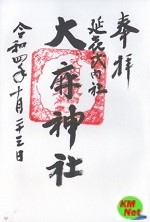 奉拝
延喜式内社
大麻神社
令和四年十月二十三日
KM
Net